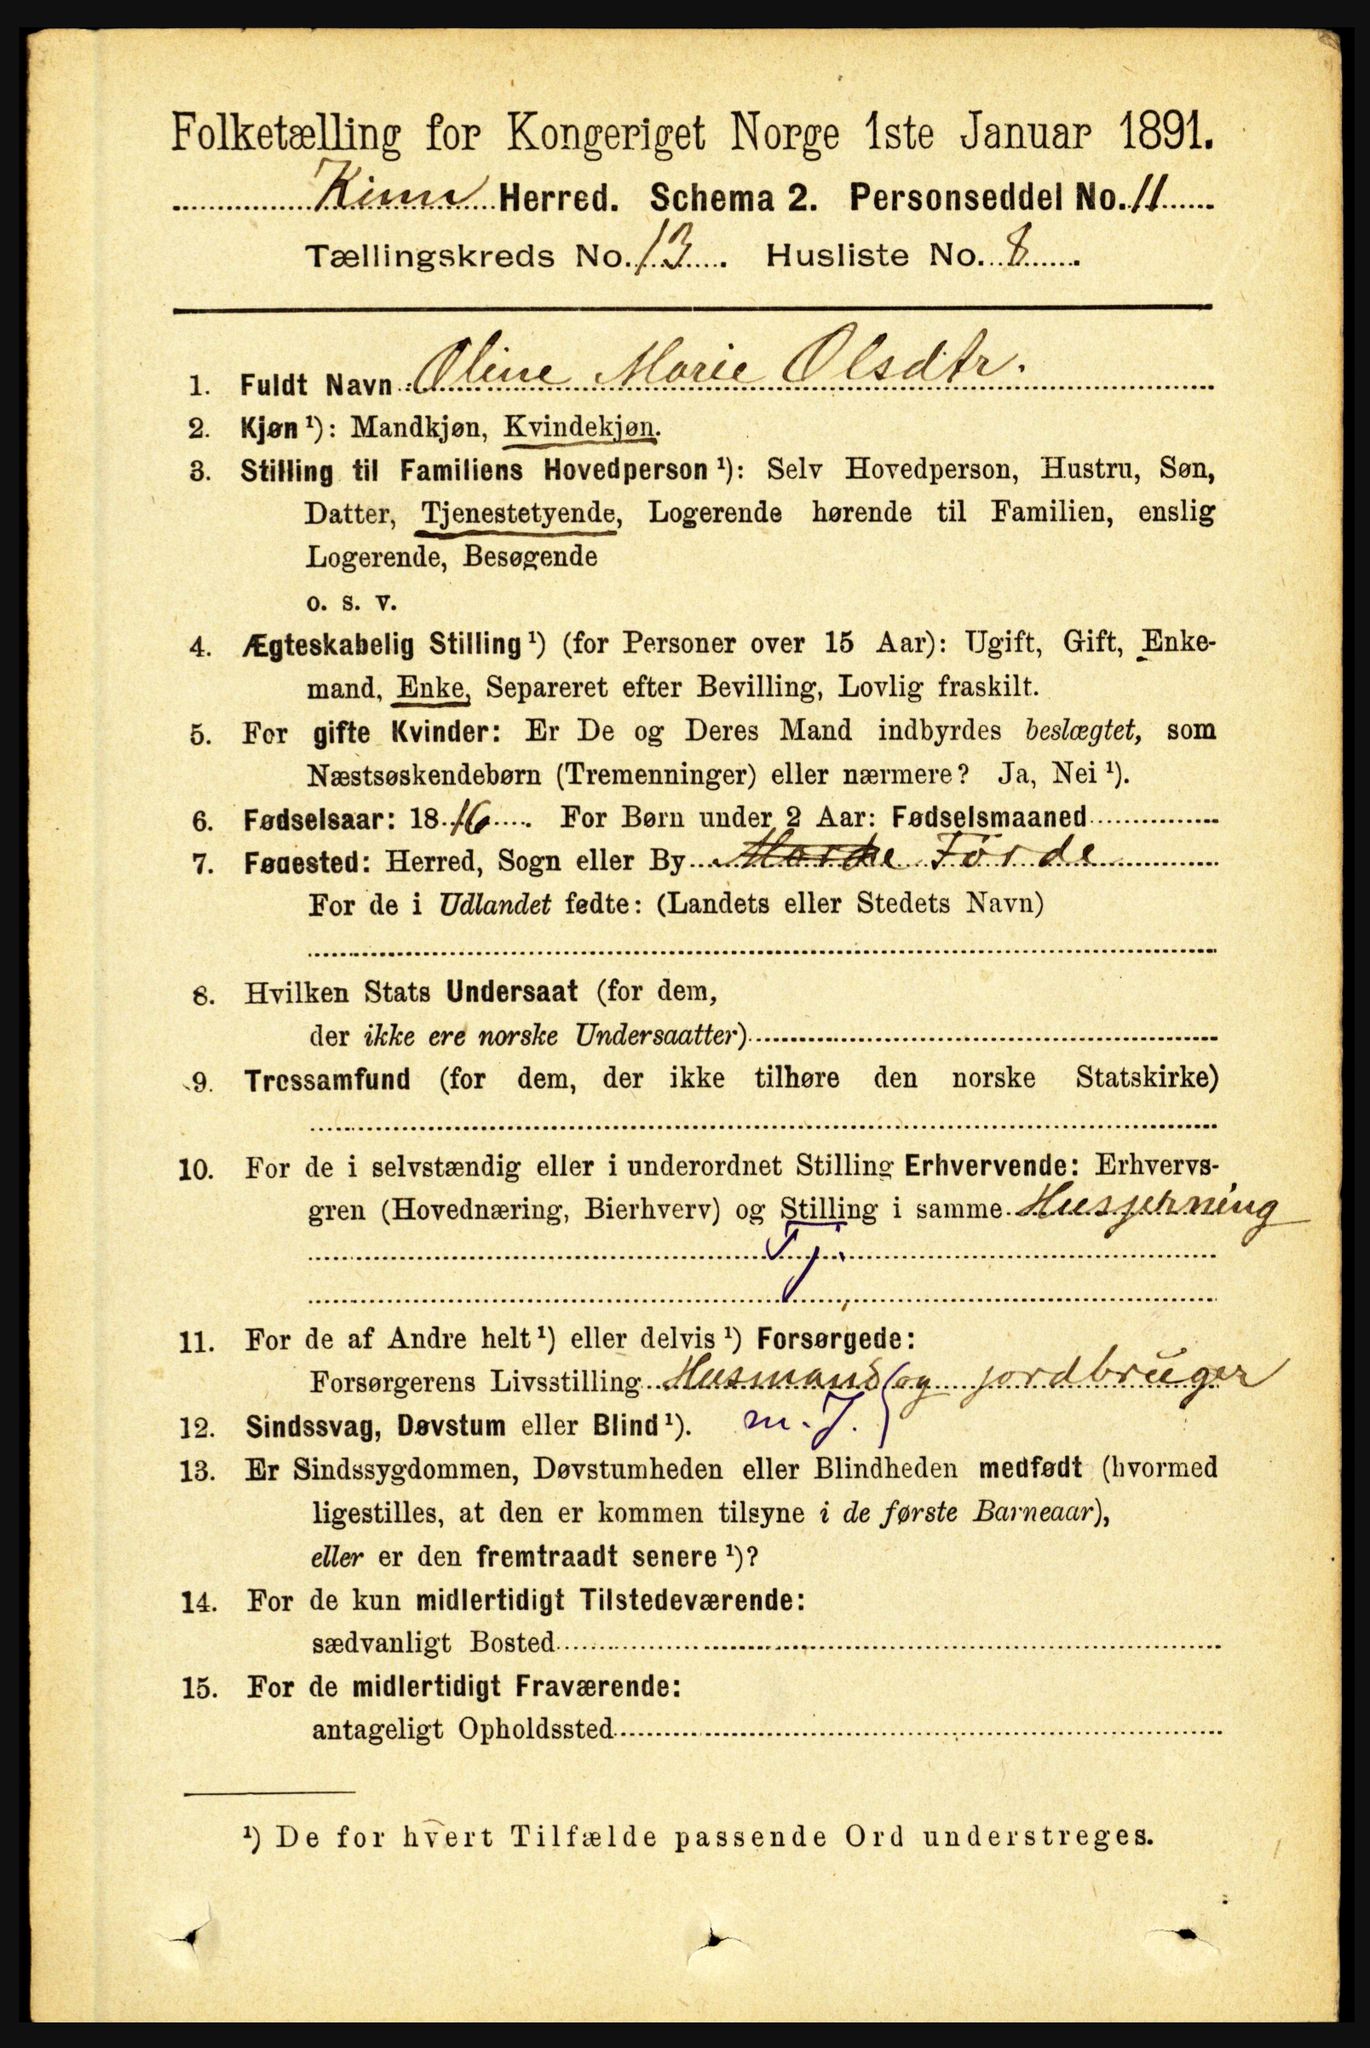 Folketælling for Kongeriget Norge 1ste Januar 1891.
Kinn Herred. Schema 2. Personseddel No. 11
Tællingskreds No. 13. Husliste No. 8.
1. Fuldt Navn Oline Marie Olsdtr.
2. Kjøn ¹): Mandkjøn, Kvindekjøn.
3. Stilling til Familiens Hovedperson ¹): Selv Hovedperson, Hustru, Søn,
Datter, Tjenestetyende, Logerende hørende til Familien, enslig
Logerende, Besøgende
o. s. v.
4. Ægteskabelig Stilling ¹) (for Personer over 15 Aar): Ugift, Gift, Enke-
mand, Enke, Separeret efter Bevilling, Lovlig fraskilt.
5. For gifte Kvinder: Er De og Deres Mand indbyrdes beslægtet, som
Næstsøskendebørn (Tremenninger) eller nærmere? Ja, Nei ¹).
6. Fødselsaar: 1816. For Børn under 2 Aar: Fødselsmaaned
7. Fødested: Herred, Sogn eller By Førde
For de i Udlandet fødte: (Landets eller Stedets Navn)
8. Hvilken Stats Undersaat (for dem,
der ikke ere norske Undersaatter)
9. Trossamfund (for dem, der ikke tilhøre den norske Statskirke)
10. For de i selvstændig eller i underordnet Stilling Erhvervende: Erhvervs-
gren (Hovednæring, Bierhverv) og Stilling i samme Husgjerning
Tj.
11. For de af Andre helt ¹) eller delvis ¹) Forsørgede:
Forsørgerens Livsstilling Husmand og jordbruger
12. Sindssvag, Døvstum eller Blind ¹). m. J.
13. Er Sindssygdommen, Døvstumheden eller Blindheden medfødt (hvormed
ligestilles, at den er kommen tilsyne i de første Barneaar),
eller er den fremtraadt senere ¹)?
14. For de kun midlertidigt Tilstedeværende:
sædvanligt Bosted
15. For de midlertidigt Fraværende:
antageligt Opholdssted
¹) De for hvert Tilfælde passende Ord understreges.